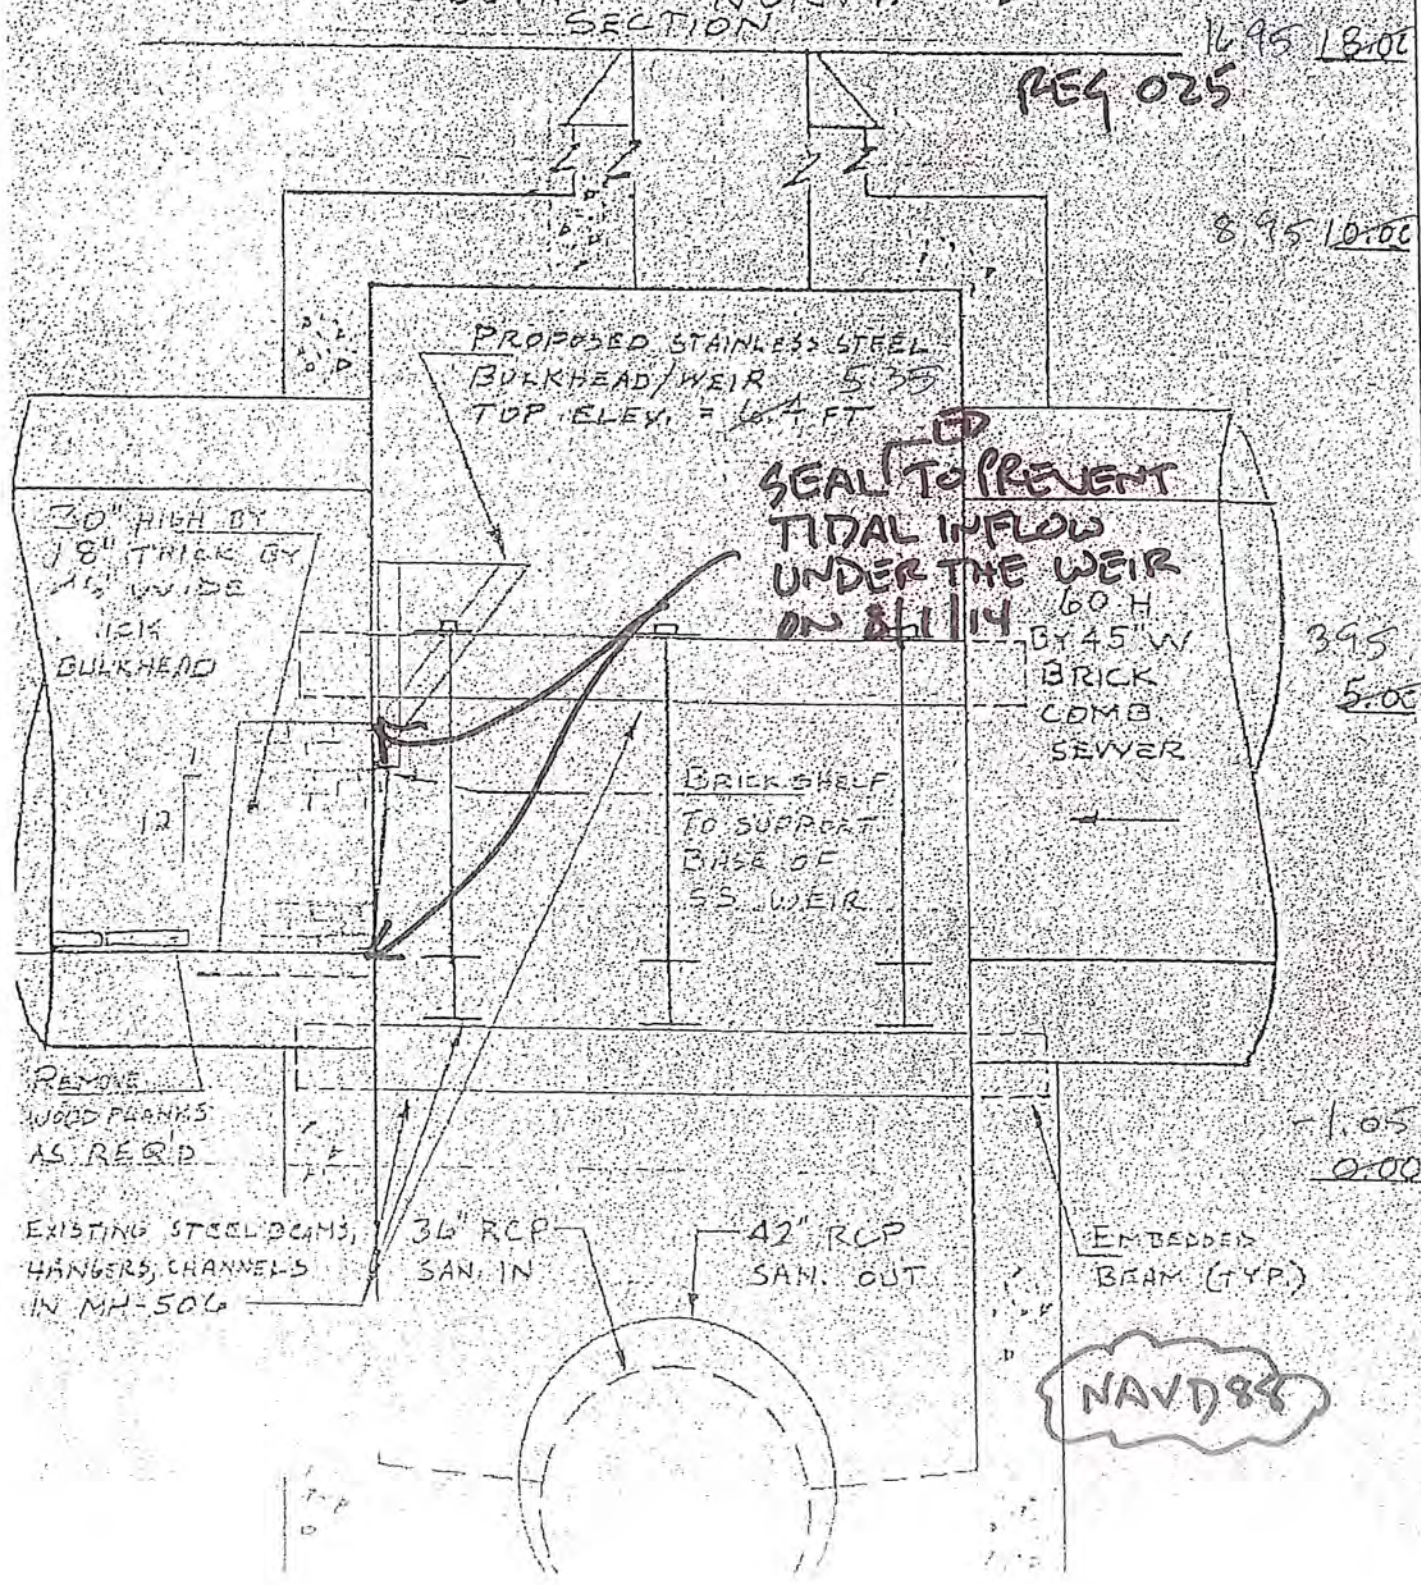 SECTION
16.95 18.00
REG 025
8.95 10.00
PROPOSED STAINLESS STEEL
BULKHEAD/WEIR 5.35
TOP ELEV. = 6.4 FT
SEALED TO PREVENT
TIDAL INFLOW
UNDER THE WEIR
ON 8/1/14
30" HIGH BY
18" THICK BY
WIDE
BULKHEAD
60 H
BY 45" W
BRICK
COMB
SEWER
3.95
5.00
1
12
BRICK SHELF
TO SUPPORT
BASE OF
SS WEIR
REMOVE
WOOD PLANKS
AS REQ'D
-1.05
0.00
EXISTING STEEL BEAMS,
HANGERS, CHANNELS
IN MH-506
36" RCP
SAN. IN
42" RCP
SAN. OUT
EMBEDDED
BEAM (TYP.)
NAVD88